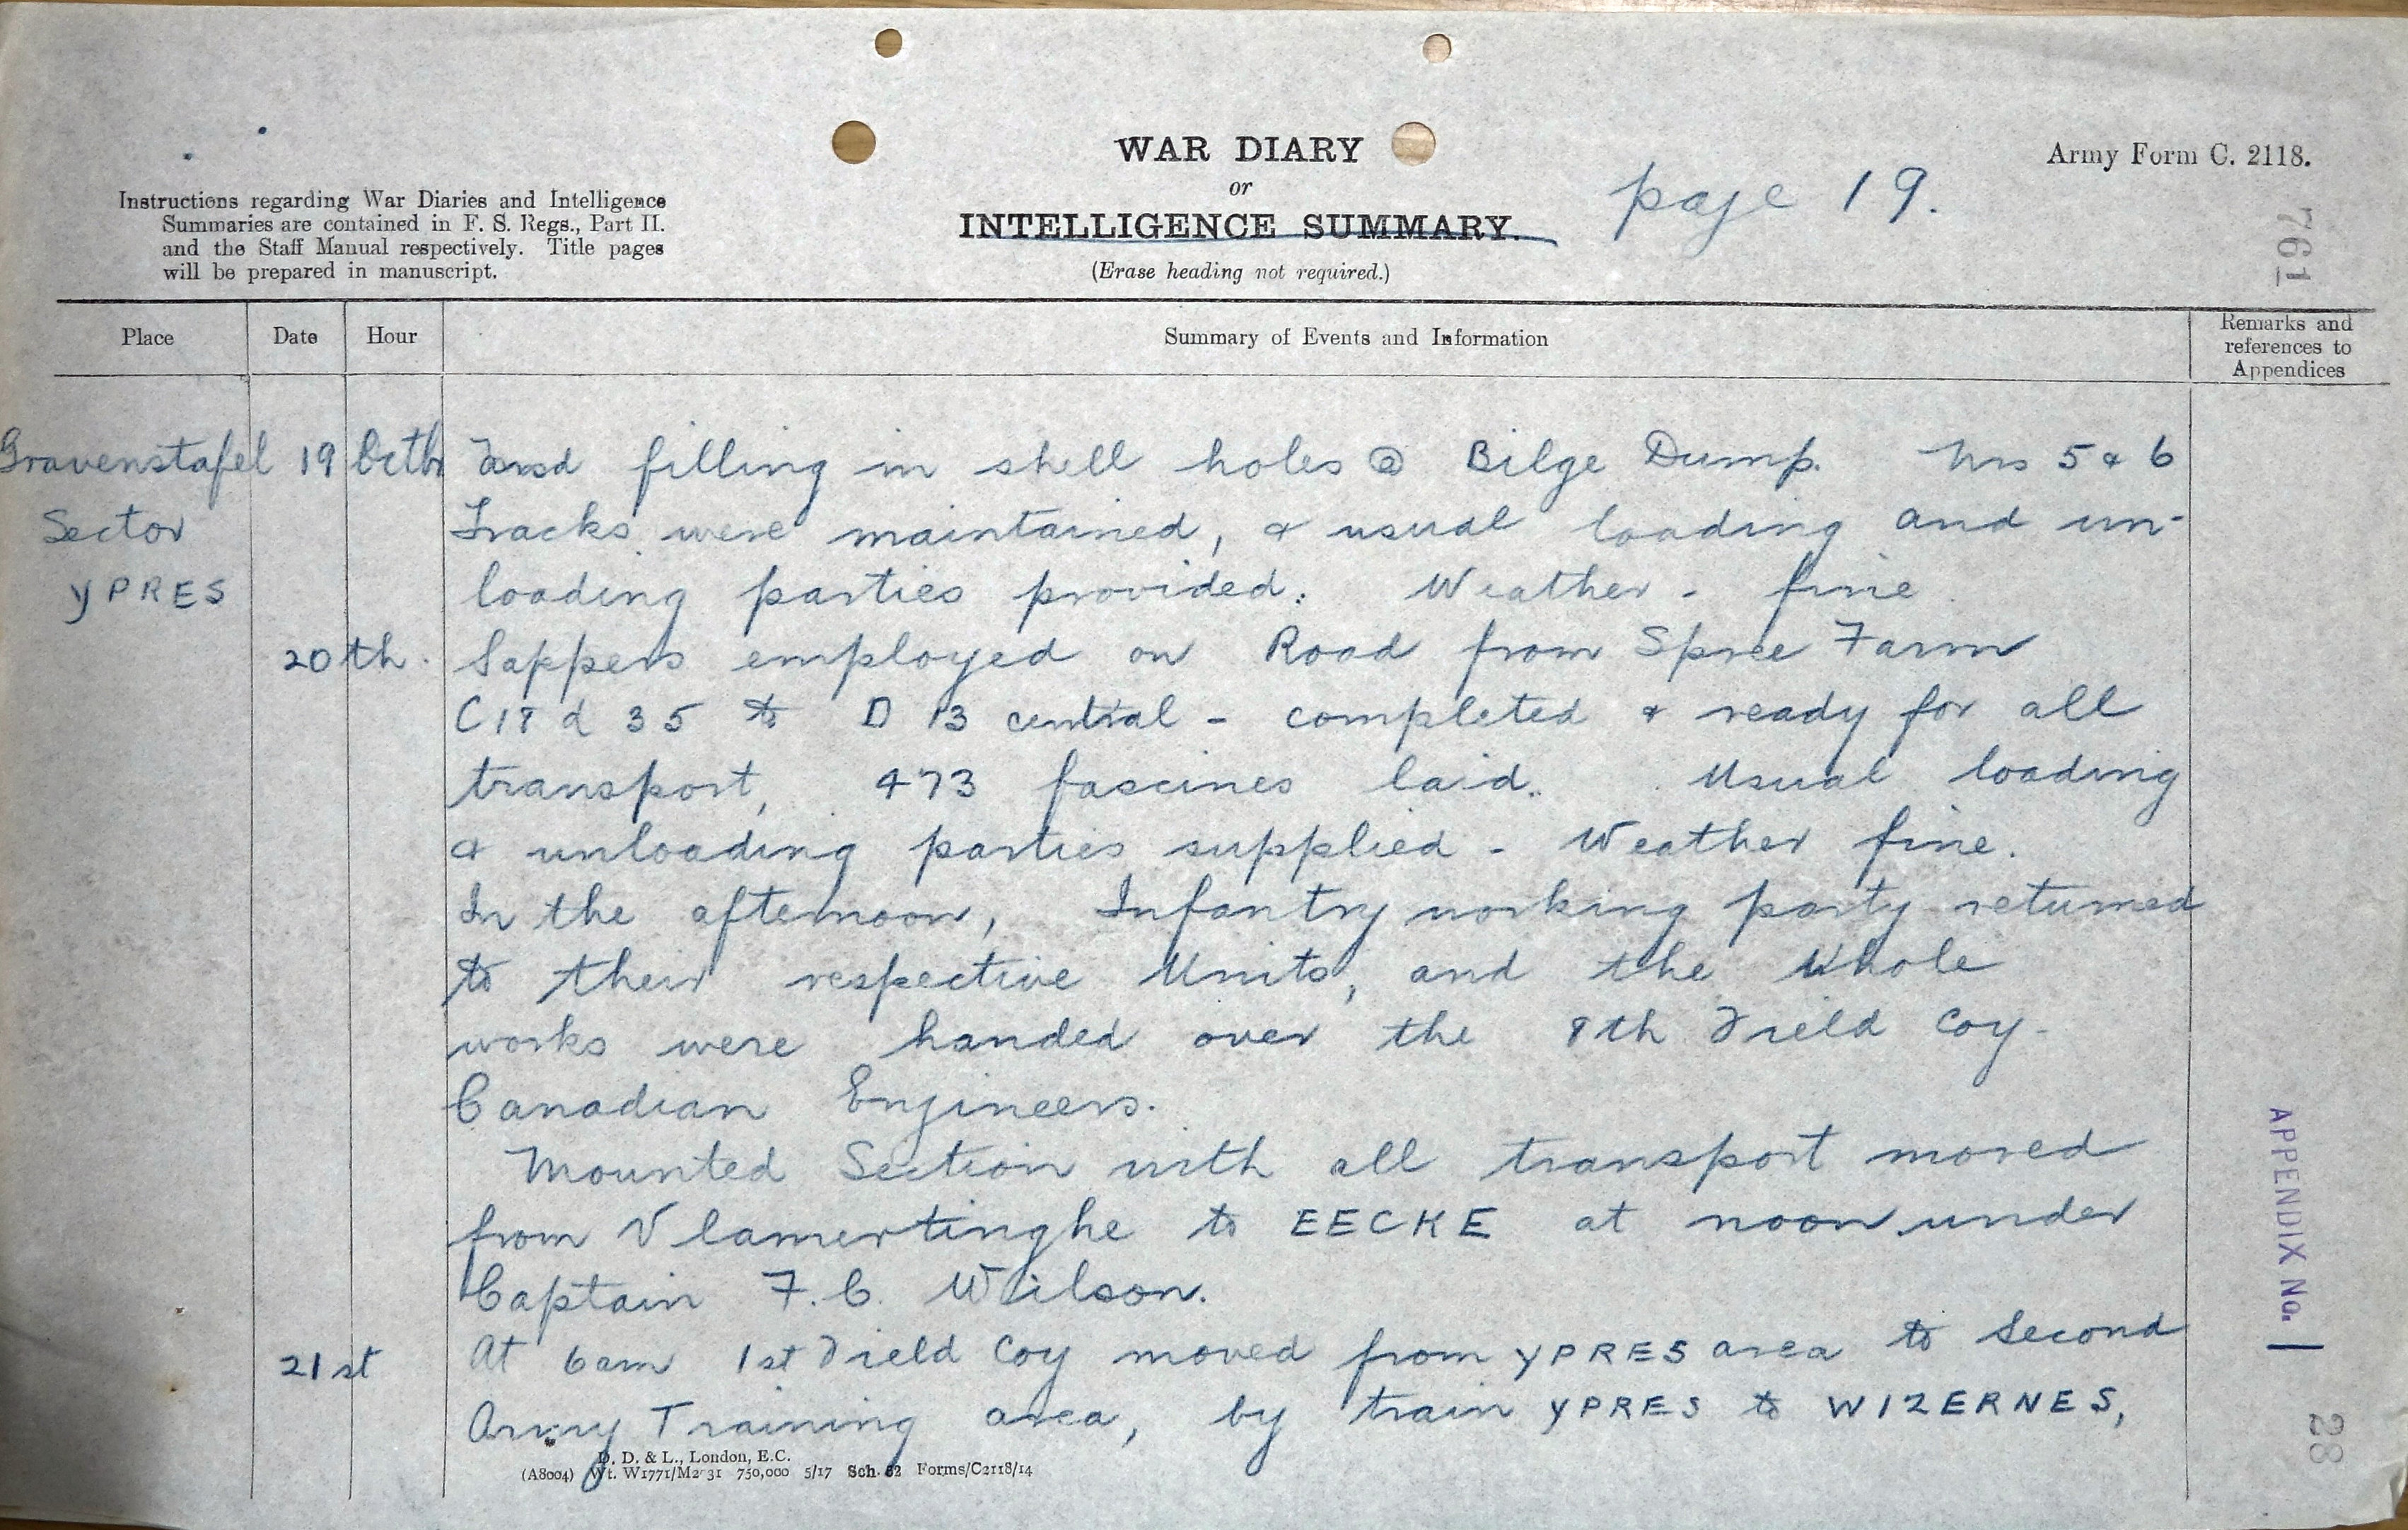 WAR DIARY
or
INTELLIGENCE SUMMARY.
(Erase heading not required.)
page 19.
Army Form C. 2118.
761
Instructions regarding War Diaries and Intelligence
Summaries are contained in F. S. Regs., Part II.
and the Staff Manual respectively. Title pages
will be prepared in manuscript.
Place Date Hour Summary of Events and Information Remarks and references to Appendices
Gravenstafel 19 Octbr filling in shell holes @ Bilge Dump. Nos 5 & 6
Sector tracks were maintained, & usual loading and un-
YPRES loading parties provided. Weather - fine
20th. Sappers employed on Road from Spree Farm
C 18 d 35 to D 13 central - completed & ready for all
transport, 473 fascines laid. Usual loading
& unloading parties supplied - Weather fine.
In the afternoon, Infantry working party returned
to their respective Units, and the whole
works were handed over the 8th Field Coy-
Canadian Engineers.
Mounted Section with all transport moved
from Vlamertinghe to EECKE at noon under
Captain F. C. Wilson.
21st At 6am 1st Field Coy moved from YPRES area to Second
Army Training area, by train YPRES to WIZERNES,
D. D. & L., London, E.C.
(A8004) Wt. W1771/M2 31 750,000 5/17 Sch. 52 Forms/C2118/14
APPENDIX No. 1
28